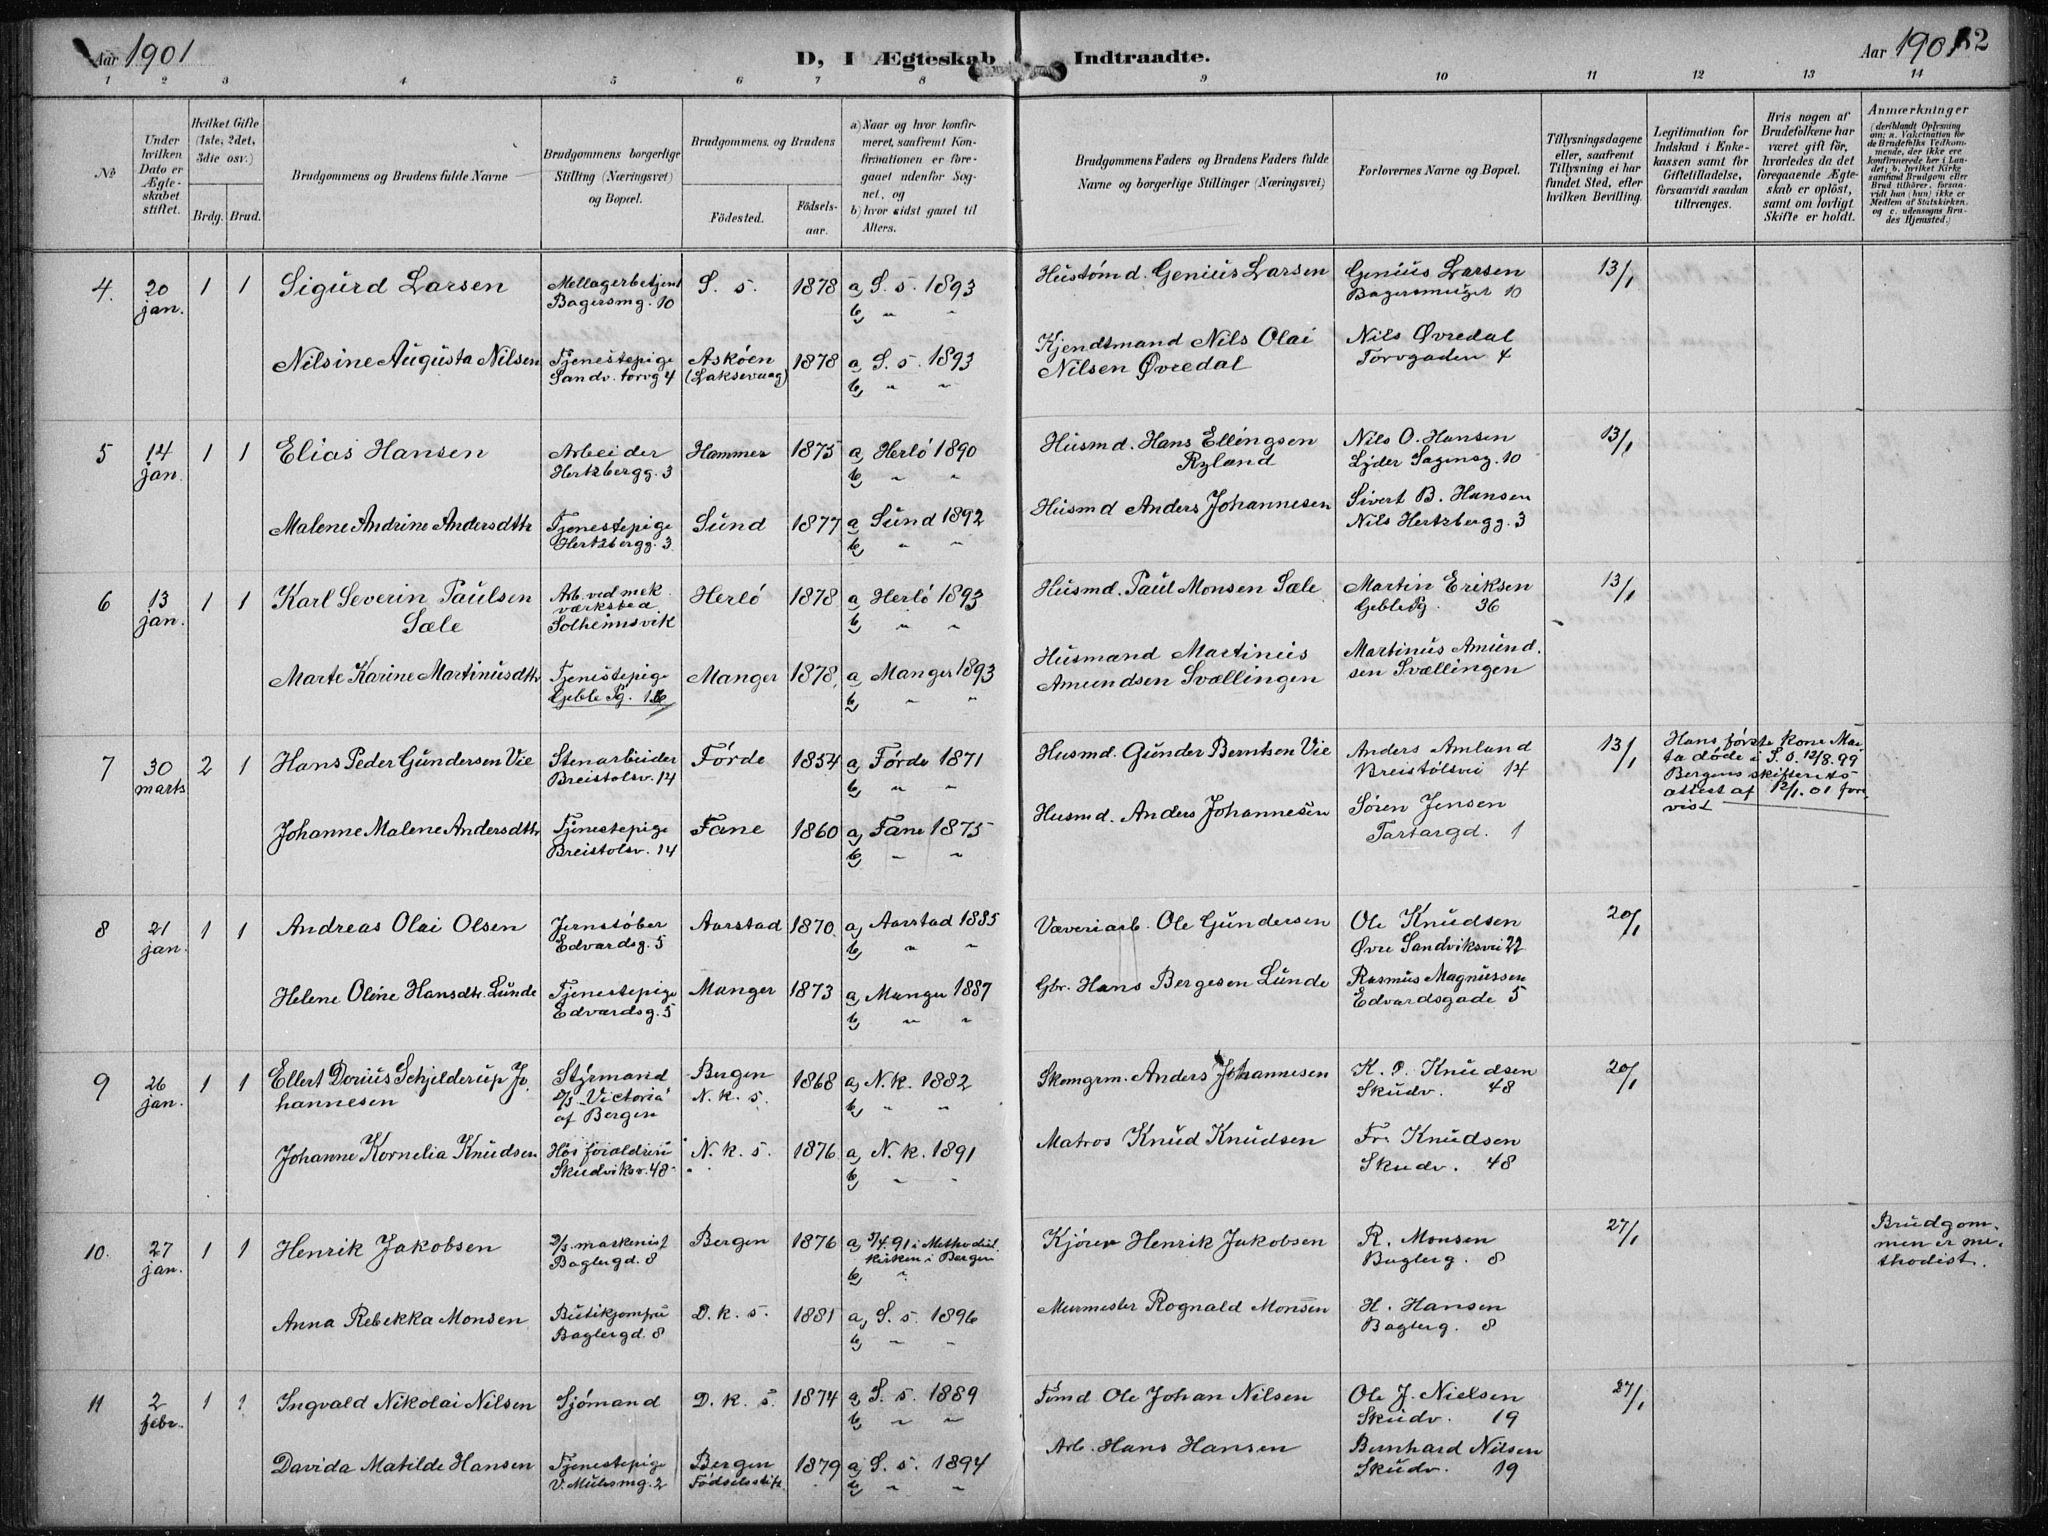 Aar 1901
D, I Ægteskab Indtraadte.
Aar 1901
82
1 2 3 4 5 6 7 8 9 10 11 12 13 14
No
Under hvilken Dato er Ægteskabet stiftet.
Hvilket Gifte (1ste, 2det, 3die osv.)
Brdg. Brud.
Brudgommens og Brudens fulde Navne
Brudgommens borgerlige Stilling (Næringsvei) og Bopæl.
Brudgommens og Brudens
Fødested.
Fødselsaar.
a) Naar og hvor konfirmeret, saafremt Konfirmationen er foregaaet udenfor Sognet, og
b) hvor sidst gaaet til Alters.
Brudgommens Faders og Brudens Faders fulde Navne og borgerlige Stillinger (Næringsvei)
Forlovernes Navne og Bopæl.
Tillysningsdagene eller, saafremt Tillysning ei har fundet Sted, efter hvilken Bevilling.
Legitimation for Indskud i Enkekassen samt for Giftetilladelse, forsaavidt saadan tiltrænges.
Hvis nogen af Brudefolkene har været gift før, hvorledes da det foregaaende Ægteskab er opløst, samt om lovligt Skifte er holdt.
Anmærkninger
(deriblandt Oplysning om: a. Vakcination for de Brudefolks Vedkommende, der ikke ere konfirmerede her i Landet; b. hvilket Kirkesamfund Brudgom eller Brud tilhører, forsaavidt han (hun) ikke er Medlem af Statskirken, og c. udensogns Brudes Hjemsted.)
4. 20 jan. 1 1 Sigurd Larsen
Mellagerbetjent Bagersmg. 10
S. s. 1878 a, S. s. 1893
b, " "
Hustømd. Genius Larsen
Genius Larsen
Bagersmuget 10
13/1
Nilsine Augusta Nilsen
Tjenestepige Sandv. torvg 4
Askøen (Laksevaag) 1878 a, S. s. 1893
b, " "
Kjendtmand Nils Olai
Nilsen Øvredal
Nils Øvredal
Torvgaden 4
5 14 jan. 1 1 Elias Hansen
Arbeider Hertzbergg. 3
Hammer 1875 a, Herlø 1890
b, " "
Husmd. Hans Ellingsen
Ryland
Nils O. Hansen
Lyder Sagensg. 10
13/1
Malene Andrine Andersdttr
Tjenestepige Hertzbergg. 3
Sund 1877 a, Sund 1892
b, " "
Husmd Anders Johannesen
Sivert B. Hansen
Nils Hertzbergg. 3
6 13 jan. 1 1 Karl Severin Paulsen
Sæle
Arb. ved mek. værksted Solheimsvik
Herlø 1878 a, Herlø 1893
b, " "
Husmd. Paul Monsen Sæle
Martin Eriksen
Geble Pg. 36
13/1
Marte Karine Martinusdttr
Tjenestepige Geble Pg.
Manger 1878 a, Manger 1893
b, " "
Husmand Martinius
Amundsen Svællingen
Martinus Amund
sen Svællingen
7 30 marts 2 1 Hans Peder Gundersen Vie
Stenarbeider Breistolsv. 14
Førde 1854 a, Førde 1871
b, " "
Husmd. Gunder Berntsen Vie
Anders Amland
Breistølsvei 14
13/1
Hans første kone Mar
ta døde i S. O. 12/8.99
Bergens skifterets
attest af 12/1.01 fore
vist
Johanne Malene Andersdttr
Tjenestepige Breistolsv. 14
Fane 1860 a, Fane 1875
b, " "
Husmd. Anders Johannesen
Søren Jensen
Tartargd. 1
8 21 jan. 1 1 Andreas Olai Olsen
Jernstøber Edvardsg. 5
Aarstad 1870 a, Aarstad 1885
b, " "
Væveriarb. Ole Gundersen
Ole Knudsen
Øvre Sandviksvei 22
20/1
Helene Oline Hansdtr. Lunde
Tjenestepige Edvardsg. 5
Manger 1873 a, Manger 1887
b, " "
Gbr. Hans Bergesen Lunde
Rasmus Magnussen
Edvardsgade 5
9 26 jan. 1 1 Ellert Dorius Schjelderup Jo
hannesen
Styrmand D/S "Victoria" af Bergen
Bergen N. k. s. 1868 a, N. k. 1882
b, " "
Skomgrm. Anders Johannesen
K. P. Knudsen
Skudv. 48
20/1
Johanne Kornelia Knudsen
Hos forældrene Skudviksv. 48
N. k. s. 1876 a, N. k. 1891
b, " "
Matros Knud Knudsen
Fr. Knudsen
Skudv. 48
10. 27 jan. 1 1 Henrik Jakobsen
D/S. maskenist Baglergd. 8
Bergen 1876 a, 5/4.91 i Methodist
kirken i Bergen
b, "
Kjører Henrik Jakobsen
R. Monsen
Baglerg. 8
27/1
Brudgom
men er me
thodist.
Anna Rebekka Monsen
Butikjomfru Baglergd. 8
D. k. s. 1881 a, S. s. 1896
b, " "
Murmester Rognald Monsen
H. Hansen
Baglerg. 8
11 2 febr. 1 1 Ingvald Nikolai Nilsen
Sjømand
D. k. s. 1874 a, S. s. 1889
b, " "
Tømd Ole Johan Nilsen
Ole J. Nielsen
Skudv. 19
27/1
Davida Matilde Hansen
Tjenestepige V. Mulesmg. 2
Bergen Fødselsstift. 1879 a, S. s. 1894
b, " "
Arb. Hans Hansen
Bernhard Nilsen
Skudv. 19